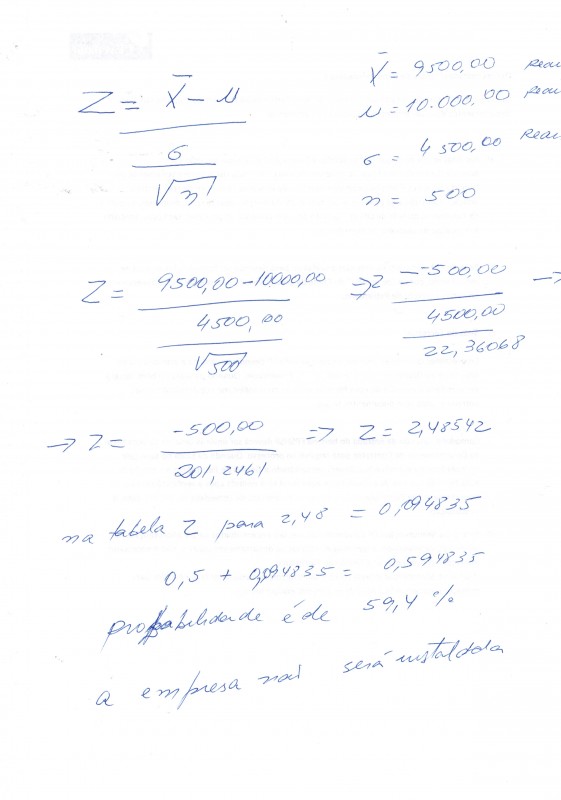 Z = X̄ - μ
σ
√n
X̄ = 9500,00
μ = 10.000,00
σ = 4500,00
n = 500
Z = 9500,00-10000,00 => z = -500,00 →
4500,00 4500,00
√500 22,36068
→ Z = -500,00 => Z = 2,48542
201,2461
na tabela Z para 2,48 = 0,094835
0,5 + 0,094835 = 0,594835
probabilidade é de 59,4 %
a empresa não será instalada